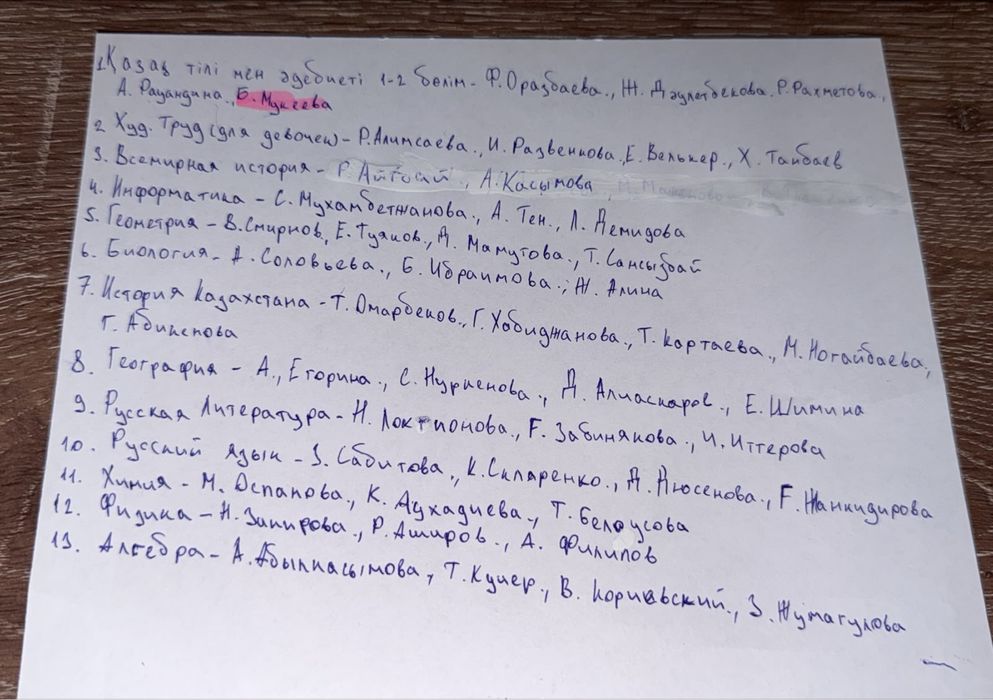 1. Қазақ тілі мен әдебиеті 1-2 бөлім - Ф.Оразбаева., Ж. Дәулетбекова. Р. Рахметова.,
А. Рауандина., Б. Мукеева
2 Худ. Труд (для девочек) - Р.Алимсаева., И. Развенкова. Е. Велькер., Х. Танбаев
3. Всемирная история - Р. Айтбай, А.Касымова
4. Информатика - С. Мухамбетжанова., А. Тен., Л. Демидова
5. Геометрия - В.Смирнов, Е. Туяков., Д. Мамутова., Т. Сансызбай
6. Биология - А. Соловьева., Б. Ибраимова., Ж. Алина
7. История Казахстана - Т. Омарбеков., Г. Хабиджанова., Т. Картаева., М. Ногайбаева.,
Г. Абикенова
8. География - А., Егорина., С. Нуркенова., Д. Алиаскаров., Е. Шимина
9. Русская Литература - Н. Локтионова., Г. Забинякова., И. Иггерова
10. Русский язык - З. Сабитова., К. Скляренко., Д. Дюсенова., Г. Жанкидирова
11. Химия - М. Оспанова., К. Аухадиева., Т. Белоусова
12. Физика - Н. Закирова., Р. Аширов., А. Филипов
13. Алгебра - А. Абылкасымова, Т. Кучер., В. Корчевский., З. Жумагулова